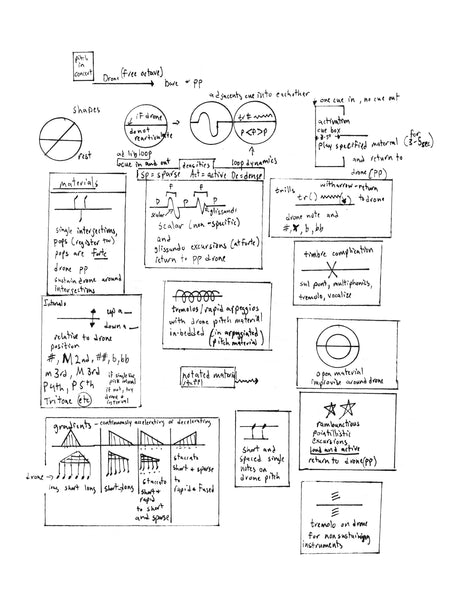 pitch
in
concert
Drone (free octave)
base = pp
adjacents cue into eachother
shapes
rest
if drone
do not
rearticulate
ad lib loop
cue in and out
tr # 
p < p > p
loop dynamics
one cue in, no cue out
activation
cue box
play specified material (for 3-5sec)
and return to
drone (pp)
materials
single intersections,
pops (register ↑↓)
pops are forte
drone pp
sustain drone around
intersections
densities
Sp = sparse Act = active De = dense
p
f
p
f
p
scalar
glissando
Scalar (non-specific)
and
glissando excursions (at forte)
return to pp drone
trills
with arrow - return
to drone
tr( )
drone note and
#, x, b, bb
timbre complication
sul pont, multiphonics,
tremolo, vocalise
Intervals
up a __
down a __
relative to drone
position
#, M 2nd, ##, b, bb
m 3rd, M 3rd
P4th, P 5th
Tritone etc
if single line
pick interval
if not, try
drone +
interval
tremolos/rapid arpeggios
with drone pitch material
in-bedded (in arpeggiated
pitch material)
notated material
(stuff)
open material
improvise around drone
rambunctious
pointillistic
excursions
loud and active
return to drone (pp)
gradients - continuously accelerating or decelerating
drone
long, short long
short, long
staccato
short +
rapid
to short
and sparse
staccato
short + sparse
to
rapid + fused
short and
spaced single
notes on
drone pitch
tremolo on drone
for nonsustaining
instruments